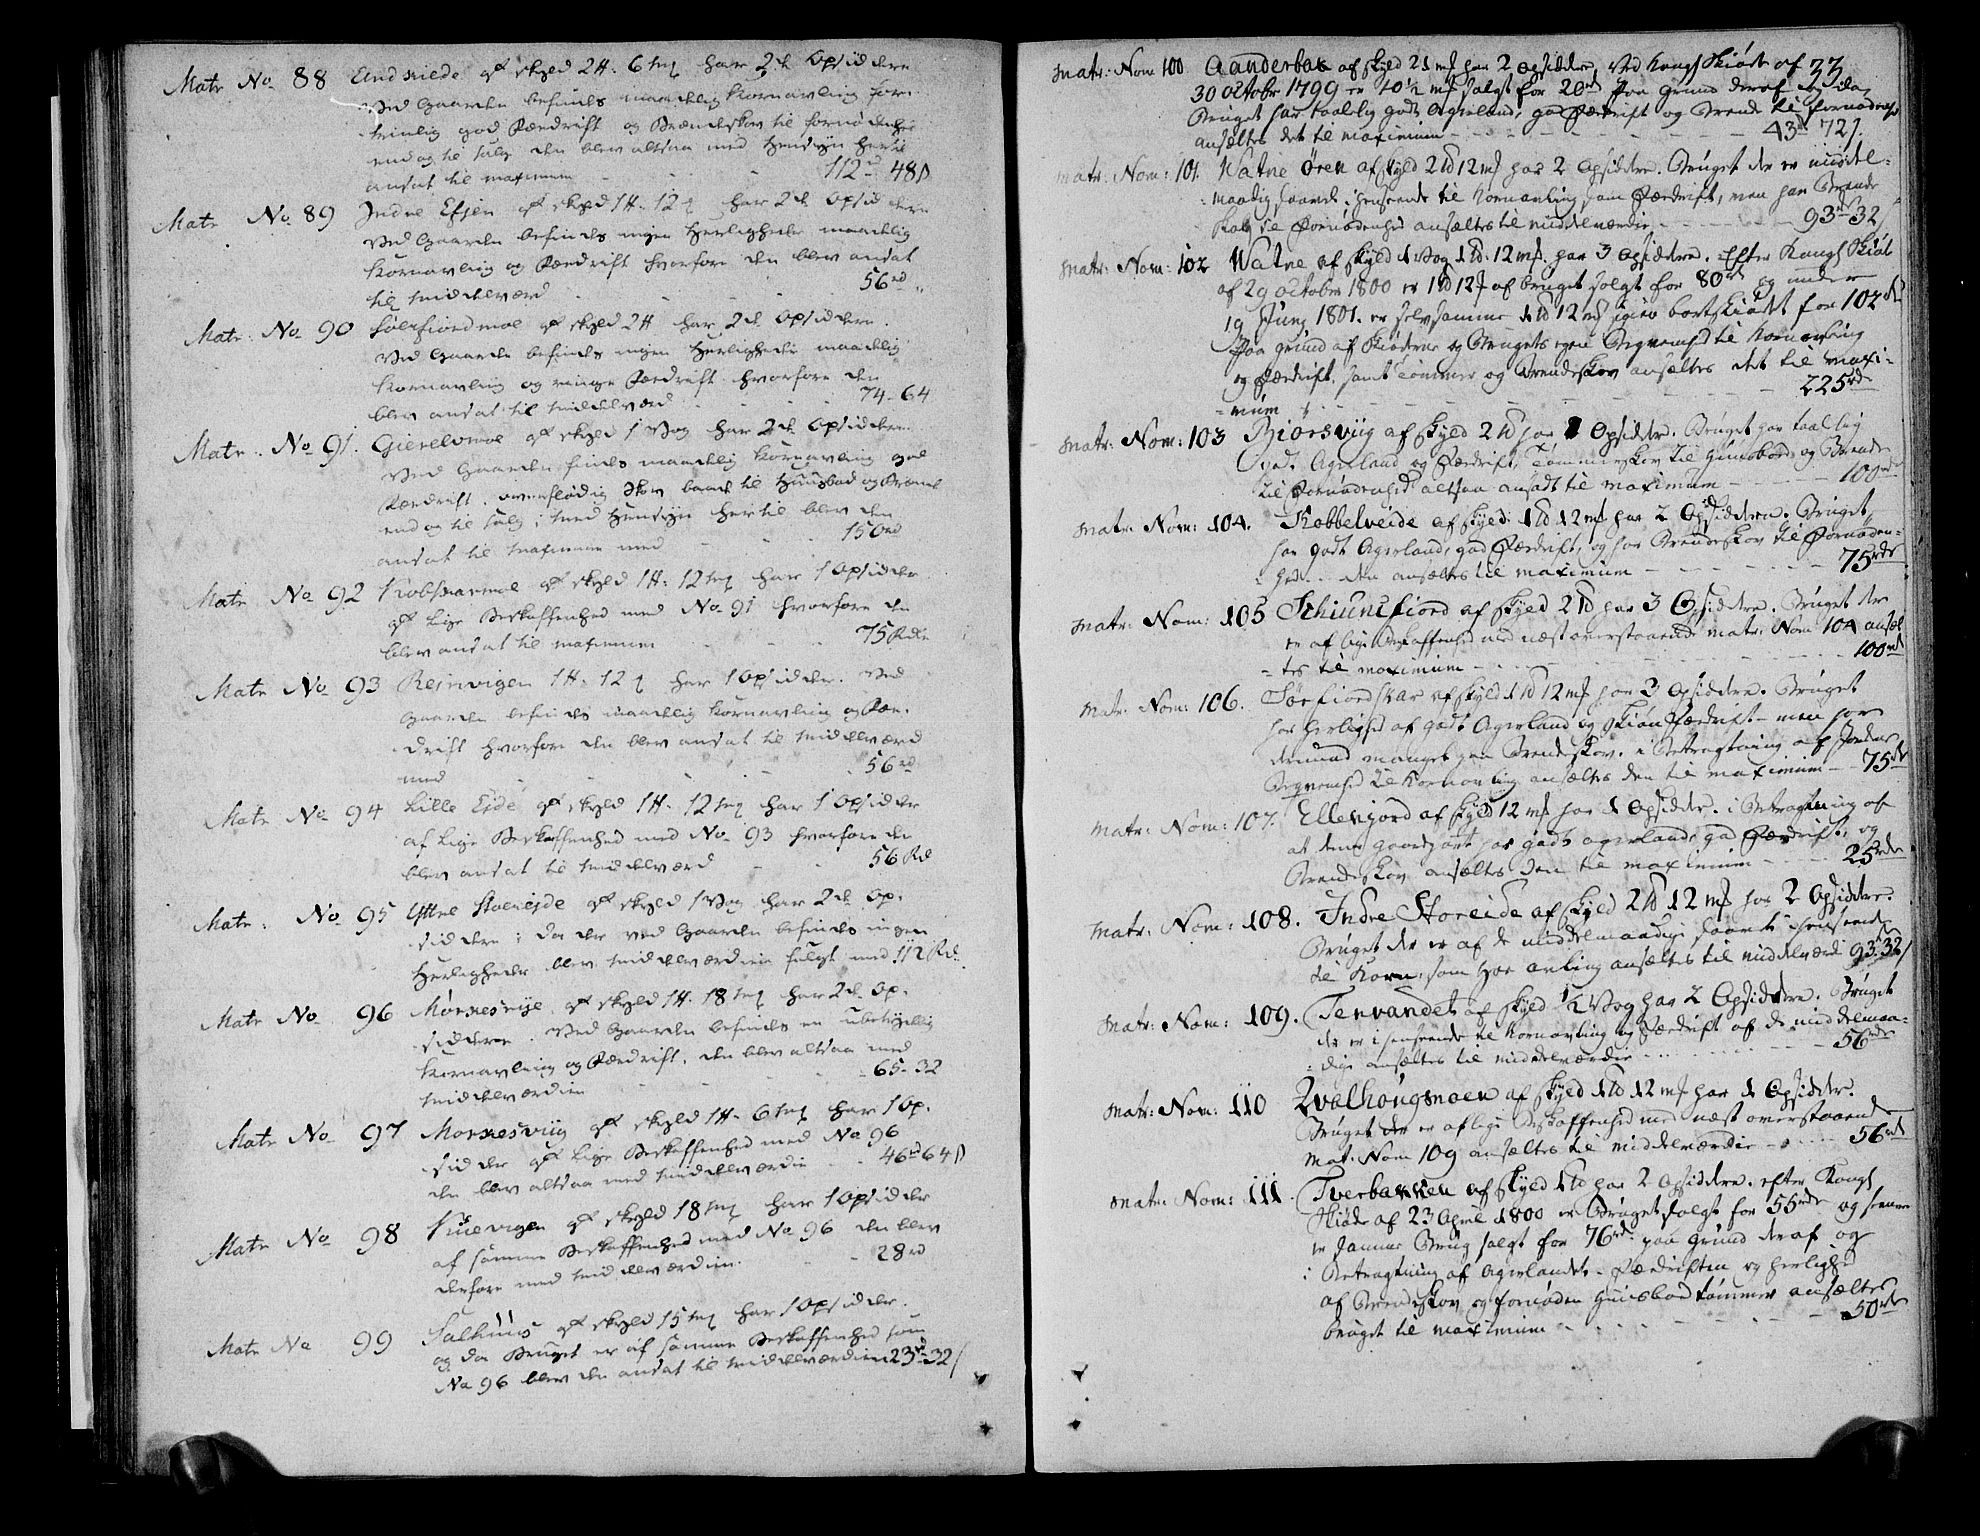 Matr No. 88 Endreide af skyld 2 H. 6 mf har 2de Opsiddere
Ved Gaarden befindes maadelig Kornavling for-
trinlig god Fædrift og Brændeskov til fornødenhed
end og til salg den blev altsaa med Hensyn hertil
ansat til maximum - - - 112rd 48 s
Matr No. 89 Indre Efjen af skyld 1 H. 12 har 2de Opsiddere
Ved Gaarden befindes ingen Herligheder maadelig
Kornavling og Fædrift hvorfore den blev ansat
til Middelværd - - - 56rd „
Matr. No. 90 moe af skyld 2 H har 2de Opsiddere.
Ved Gaarden befindes ingen Herligheder maadelig
Kornavling og ringe Fædrift hvorfore den
blev ansat til Middelværd - - 74-64
Matr. No. 91. moe af skyld 1 Vog har 2de Opsiddere
Ved Gaarden findes maadelig Kornavling god
Fædrift, overflødig Skov baade til Huusbod og Brænde
end og til salg; med Hensyn hertil blev den
ansat til Maximum med - - - 150rd
Matr No 92 af skyld 1 H. 12 mf har 1 Opsidder
af lige Beskaffenhed med No 91 hvorfore den
blev ansat til Maximum - - 75 Rdr
Matr No 93 Reinvigen 1 H. 12 har 1 Opsidder. Ved
Gaarden befindes maadelig Kornavling og Fæ-
drift hvorfore den blev ansat til Middelværd
med - - - 56rd
Matr No 94 Lille Eide af skyld 1 H. 12 mf har 1 Opsidder
af lige Beskaffenhed med No. 93 hvorfore den
blev ansat til Middelværd - - 56 Rd
Matr. No. 95 Yttre Storeide af skyld 1 Vog har 2de Op-
siddere; da der ved Gaarden befindes ingen
Herligheder blev Middelværdien fulgt med 112 Rd.
Matr No. 96 af skyld 1 H. 18 mf har 2de Op-
siddere. Ved Gaarden befindes en ubetydelig
Kornavling og Fædrift, den blev altsaa med
Middelværdien - - - 65-32
Matr No 97 Mornesviig af skyld 1 H. 6 mf har 1 Op-
sidder af lige Beskaffenhed med No 96
den blev altsaa med Middelværdie - 46rd 64 s
Matr No 98 af skyld 18 mf har 1 Opsidder
af samme Beskaffenhed med No. 96 den blev
derfore med Middelværdien. - - 28rd
Matr No 99 Salhuus af skyld 15 mf har 1 Opsidder.
og da Bruget er af samme Beskaffenhed som
No 96 blev den ansat til Middelværdien 23rd 32 s
33
Matr: Nom 100 af skyld 21 mf har 2 Opsiddere, Ved Kongl Skiøde af
30 October 1799 er 10½ mf solgt for 20rd Paa Grund deraf og da
Bruget har taalelig godt Agerland, god Fædrift og Brende til Fornødenhed
ansættes det til Maximum - - - 43rd 72 s.
Matr. Nom: 101. Watne Øren af skyld 2 Pd 12 mf har 2 Opsiddere. Bruget der er middel-
maadig saavel i henseende til Kornavling som Fædrift, men har Brende
Skov til Fornødenhed ansættes til Middelværdie - - - 93rd 32 s
Matr: Nom: 102 Watne af skyld 1 Vog 1 Pd: 12 mf. har 3 Opsiddere. Efter Kongl Skiøde
af 29 October 1800 er 1 Pd 12 af bruget solgt for 80rd og under
19 Junj 1801. er selvsamme 1 Pd 12 mf igien bortskiødet for 102rd
Paa grund af Skiøderne og Brugets egen Beqvemhed til Kornavling
og Fædrift, samt Tømmer og Brendeskov ansættes det til Maxi-
mum - - - 225rdr
Matr: Nom: 103 Biorsviig af skyld 2 Pd har 1 Opsidder. Bruget har taallig
godt Agerland og Fædrift, Tømmerskov til Huusbod og Brende
til Fornødenhed altsaa ansadt til Maximum - - - 100rd
Matr: Nom: 104. Kobbelveide af skyld: 1 Pd 12 mf har 2 Opsiddere. Bruget
har godt Agerland, god Fædrift, og har Brendeskov til Fornøden-
hed. den ansættes til Maximum - - - 75rdr
Matr: Nom: 105 Schiunsfiord af skyld 2 Pd har 3 Opsiddere. Bruget der
er af lige Beskaffenhed med næst overstaaende Matr: Nom 104 ansæt-
tes til Maximum - - - 100rd
Matr: Nom: 106. Sørfiordskar af skyld 1 Pd 12 mf har 3 Opsiddere. Bruget
har Herlighed af godt Agerland og skiøn Fædrift - men har
derimod mangel paa Brendeskov. i Betragtning af Jordens
Beqvemhed til Kornavling ansættes den til Maximum - 75rd
Matr: Nom: 107. Ellenjord af skyld 12 mf har 1 Opsidder. i Betragtning af
at denne gaardpart har godt agerland, god Fædrift, og
Brendeskov ansættes den til Maximum - - 25rdr
Matr: Nom: 108. Indre Storeide af skyld 2 Pd 12 mf har 2 Opsiddere.
Bruget der er af de middelmaadige saavel i henseende
til Korn, som Høe avling ansættes til Middelværd 93. 32 s
Matr: Nom: 109. Tervandet af skyld ½ Vog har 2 Opsiddere. Bruget
der er i henseende til Kornavling og Fædrift af de middelmaa-
dige ansættes til Middelværdie - - - 56rdr
Matr: Nom: 110 af skyld 1 Pd 12 mf har 1 Opsidder.
Bruget der er af lige Beskaffenhed med næst overstaaende
Mat: Nom 109 ansættes til Middelværdie - - 56rd
Matr: Nom: 111. Tverbakken af skyld 1 Pd har 2 Opsiddere. efter Kongl
Skiøde af 23 April 1800 er Bruget solgt for 55rdr og senere
er samme Brug solgt for 76rd. paa Grund deraf og
i Betragtning af Agerlandet - Fædriften og Herlighed
af Brendeskov og fornøden Huusbod tømmer ansættes
Bruget til Maximum - - - 50rdr